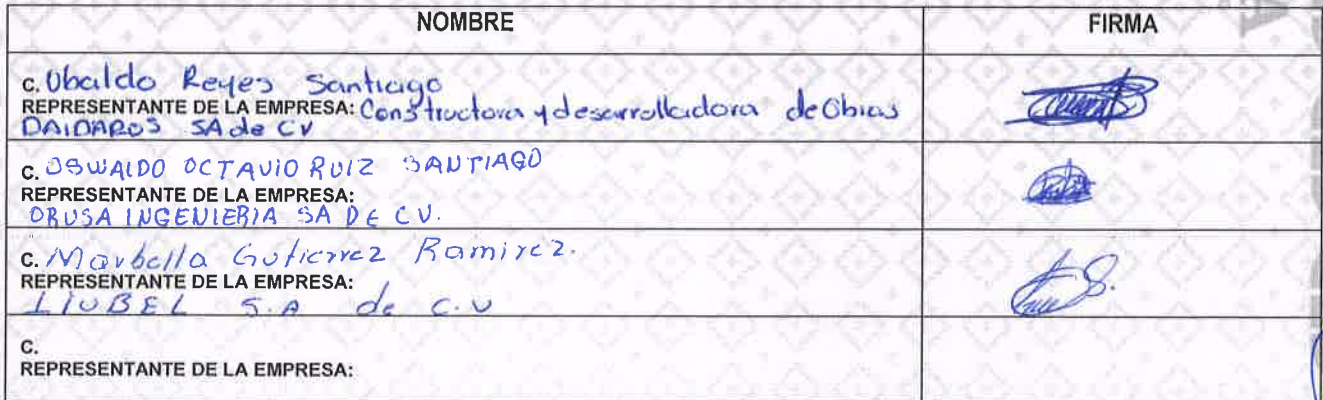 NOMBRE FIRMA
C. Ubaldo Reyes Santiago
REPRESENTANTE DE LA EMPRESA: Constructora y desarrolladora de Obras
DAIDAROS SA de CV
C. OSWALDO OCTAVIO RUIZ SANTIAGO
REPRESENTANTE DE LA EMPRESA:
ORUSA INGENIERIA SA DE C.V.
C. Marbella Gutierrez Ramirez.
REPRESENTANTE DE LA EMPRESA:
LIUBEL S.A de C.V
C.
REPRESENTANTE DE LA EMPRESA: